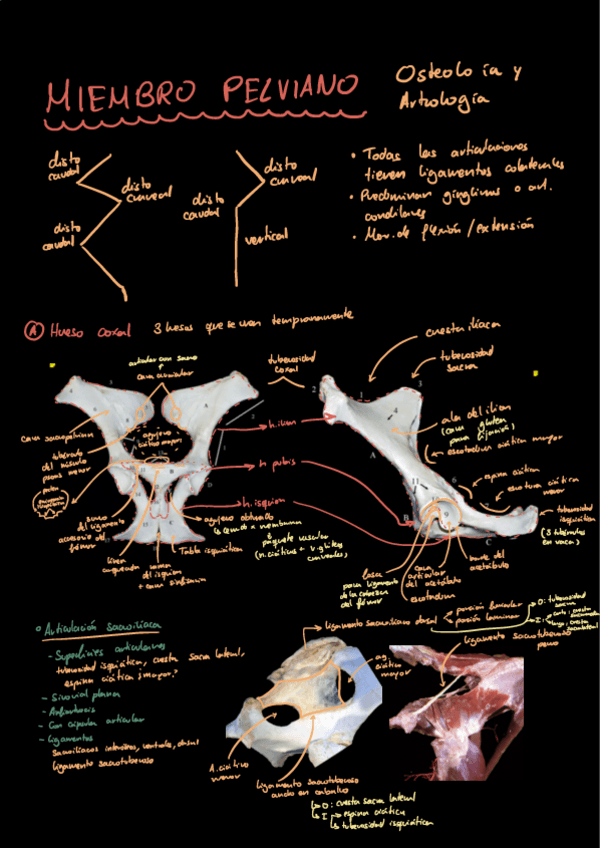 MIEMBRO PELVIANO
Osteología y
Artrología
disto
caudal
disto
craneal
disto
caudal
disto
craneal
disto
caudal
vertical
• Todas las articulaciones
tienen ligamentos colaterales
• Predominan gínglimos o art.
condilares
• Mov. de flexión/extensión
A Hueso coxal
3 huesos que se unen tempranamente
cresta ilíaca
articular con sacro
cara auricular
tuberosidad
coxal
tuberosidad
sacra
ala del ilion
(cara glútea
para fijación)
escotadura ciática mayor
cara sacropelviana
tubérculo
del músculo
psoas menor
h. ilion
h. pubis
h. isquion
espina ciática
escotadura ciática
menor
tuberosidad
isquiática
(3 tubérculos
en vaca)
surco
del ligamento
accesorio del
fémur
agujero obturado
tabla isquiática
ramas
del isquion
+ cara sinfisaria
fosa
para ligamento
de la cabeza
del fémur
cara
articular
del acetábulo
escotadura
borde del
acetábulo
° Articulación sacroilíaca
- Superficies articulares
tuberosidad isquiática, cresta sacra lateral,
espina ciática ¿mayor?
- Sinovial plana
- Anfiartrosis
- Con cápsula articular
- Ligamentos
sacroilíacos interóseo, ventrale, dorsal
ligamento sacrotuberoso
ligamento sacroilíaco dorsal
porción funicular
porción laminar
O: tuberosidad
sacra
ligamento sacrotuberoso
perro
ag.
ciático
mayor
A. ciático
menor
ligamento sacrotuberoso
ancho en caballo
O: cresta sacra lateral
I: espina ciática
tuberosidad isquiática